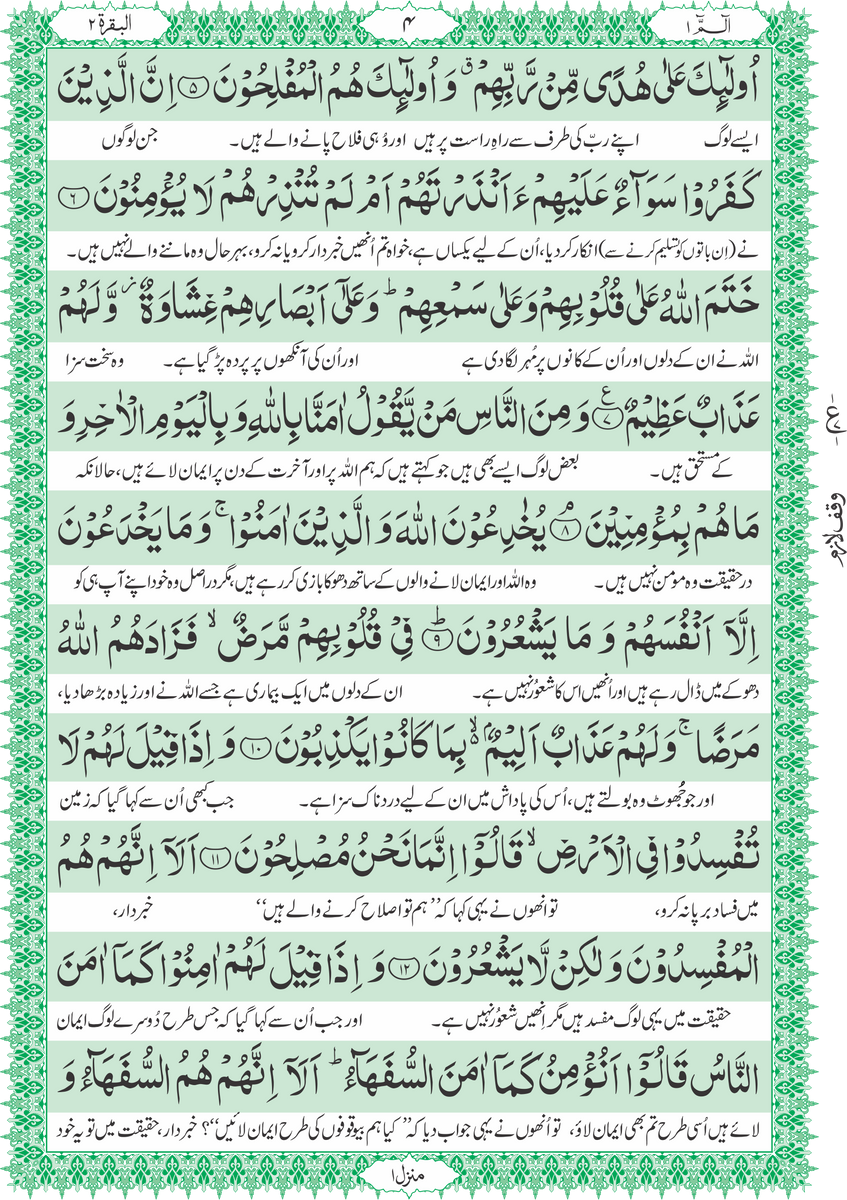 الٓـمّٓ ۱
۴
البقرۃ ۲
اُولٰٓئِكَ عَلٰی هُدًی مِّنْ رَّبِّهِمْ ۗ وَ اُولٰٓئِكَ هُمُ الْمُفْلِحُوْنَ ﴿۵﴾ اِنَّ الَّذِیْنَ
ایسے لوگ اپنے ربّ کی طرف سے راہِ راست پر ہیں اور وُہی فلاح پانے والے ہیں۔ جن لوگوں
كَفَرُوْا سَوَآءٌ عَلَیْهِمْ ءَاَنْذَرْتَهُمْ اَمْ لَمْ تُنْذِرْهُمْ لَا یُؤْمِنُوْنَ ﴿۶﴾
نے (اِن باتوں کو تسلیم کرنے سے) انکار کر دیا، اُن کے لیے یکساں ہے، خواہ تم اُنھیں خبردار کرو یا نہ کرو، بہرحال وہ ماننے والے نہیں ہیں۔
خَتَمَ اللّٰهُ عَلٰی قُلُوْبِهِمْ وَعَلٰی سَمْعِهِمْ ؕ وَعَلٰٓی اَبْصَارِهِمْ غِشَاوَةٌ ؗ وَّلَهُمْ
اللہ نے ان کے دلوں اور اُن کے کانوں پر مُہر لگا دی ہے اور اُن کی آنکھوں پر پردہ پڑ گیا ہے۔ وہ سخت سزا
عَذَابٌ عَظِیْمٌ ﴿۷﴾ ع وَ مِنَ النَّاسِ مَنْ یَّقُوْلُ اٰمَنَّا بِاللّٰهِ وَ بِالْیَوْمِ الْاٰخِرِ وَ
کے مستحق ہیں۔ بعض لوگ ایسے بھی ہیں جو کہتے ہیں کہ ہم اللہ پر اور آخرت کے دن پر ایمان لائے ہیں، حالانکہ
مَا هُمْ بِمُؤْمِنِیْنَ ﴿۸﴾ ۘ یُخٰدِعُوْنَ اللّٰهَ وَ الَّذِیْنَ اٰمَنُوْا ۚ وَ مَا یَخْدَعُوْنَ
وقف لازم
درحقیقت وہ مومن نہیں ہیں۔ وہ اللہ اور ایمان لانے والوں کے ساتھ دھوکا بازی کر رہے ہیں، مگر دراصل وہ خود اپنے آپ ہی کو
اِلَّاۤ اَنْفُسَهُمْ وَ مَا یَشْعُرُوْنَ ﴿۹﴾ ؕ فِیْ قُلُوْبِهِمْ مَّرَضٌ ۙ فَزَادَهُمُ اللّٰهُ
دھوکے میں ڈال رہے ہیں اور اُنھیں اس کا شعور نہیں ہے۔ ان کے دلوں میں ایک بیماری ہے جسے اللہ نے اور زیادہ بڑھا دیا،
مَرَضًا ۚ وَلَهُمْ عَذَابٌ اَلِیْمٌۢ ۙ۬ بِمَا كَانُوْا یَكْذِبُوْنَ ﴿۱۰﴾ وَ اِذَا قِیْلَ لَهُمْ لَا
اور جو جُھوٹ وہ بولتے ہیں، اُس کی پاداش میں ان کے لیے دردناک سزا ہے۔ جب کبھی اُن سے کہا گیا کہ زمین
تُفْسِدُوْا فِی الْاَرْضِ ۙ قَالُوْۤا اِنَّمَا نَحْنُ مُصْلِحُوْنَ ﴿۱۱﴾ اَلَاۤ اِنَّهُمْ هُمُ
میں فساد برپا نہ کرو، تو انھوں نے یہی کہا کہ ”ہم تو اصلاح کرنے والے ہیں“ خبردار،
الْمُفْسِدُوْنَ وَ لٰكِنْ لَّا یَشْعُرُوْنَ ﴿۱۲﴾ وَ اِذَا قِیْلَ لَهُمْ اٰمِنُوْا كَمَاۤ اٰمَنَ
حقیقت میں یہی لوگ مفسد ہیں مگر اِنھیں شعور نہیں ہے۔ اور جب اُن سے کہا گیا کہ جس طرح دُوسرے لوگ ایمان
النَّاسُ قَالُوْۤا اَنُؤْمِنُ كَمَاۤ اٰمَنَ السُّفَهَآءُ ؕ اَلَاۤ اِنَّهُمْ هُمُ السُّفَهَآءُ وَ
لائے ہیں اُسی طرح تم بھی ایمان لاؤ، تو اُنھوں نے یہی جواب دیا کہ ”کیا ہم بیوقوفوں کی طرح ایمان لائیں“؟ خبردار، حقیقت میں تو یہ خود
منزل ۱